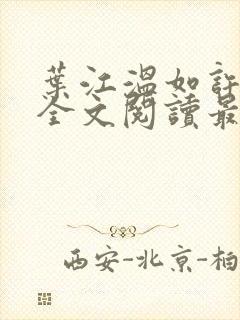 葉江溫如許
全文閱讀最
西安-北京-柏